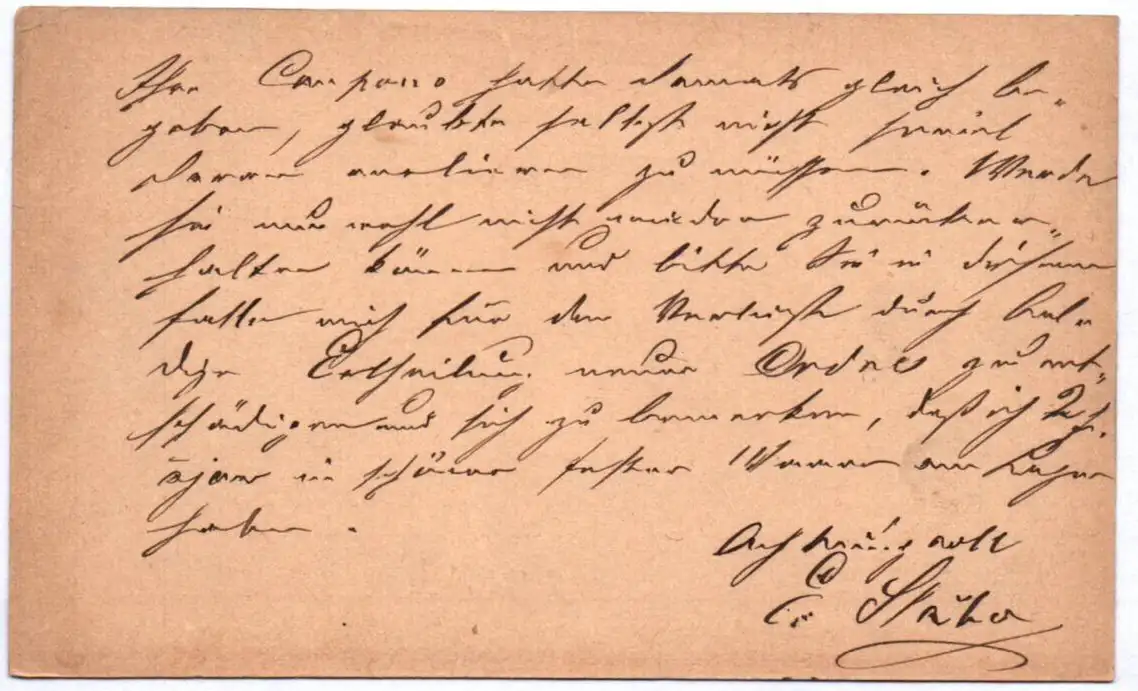 Ihr Campano hatte damals gleich be-
geben, glaubte selbst nicht soviel
daran verlieren zu müssen. Werde
sie nun wohl nicht wieder zurücker-
halten können und bitte Sie in diesem
falle mich für den Verlust durch bal-
dige Ertheilung neuer Ordres zu ent-
schädigen und sich zu bemerken, daß ich
in schöner fester Waare am Lager
habe.
Achtungsvoll